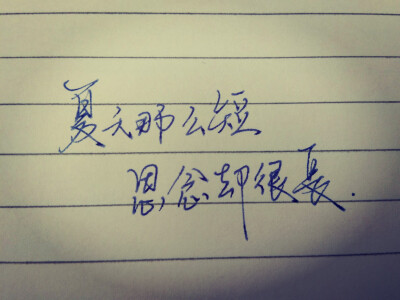 夏天那么短
思念却很长.